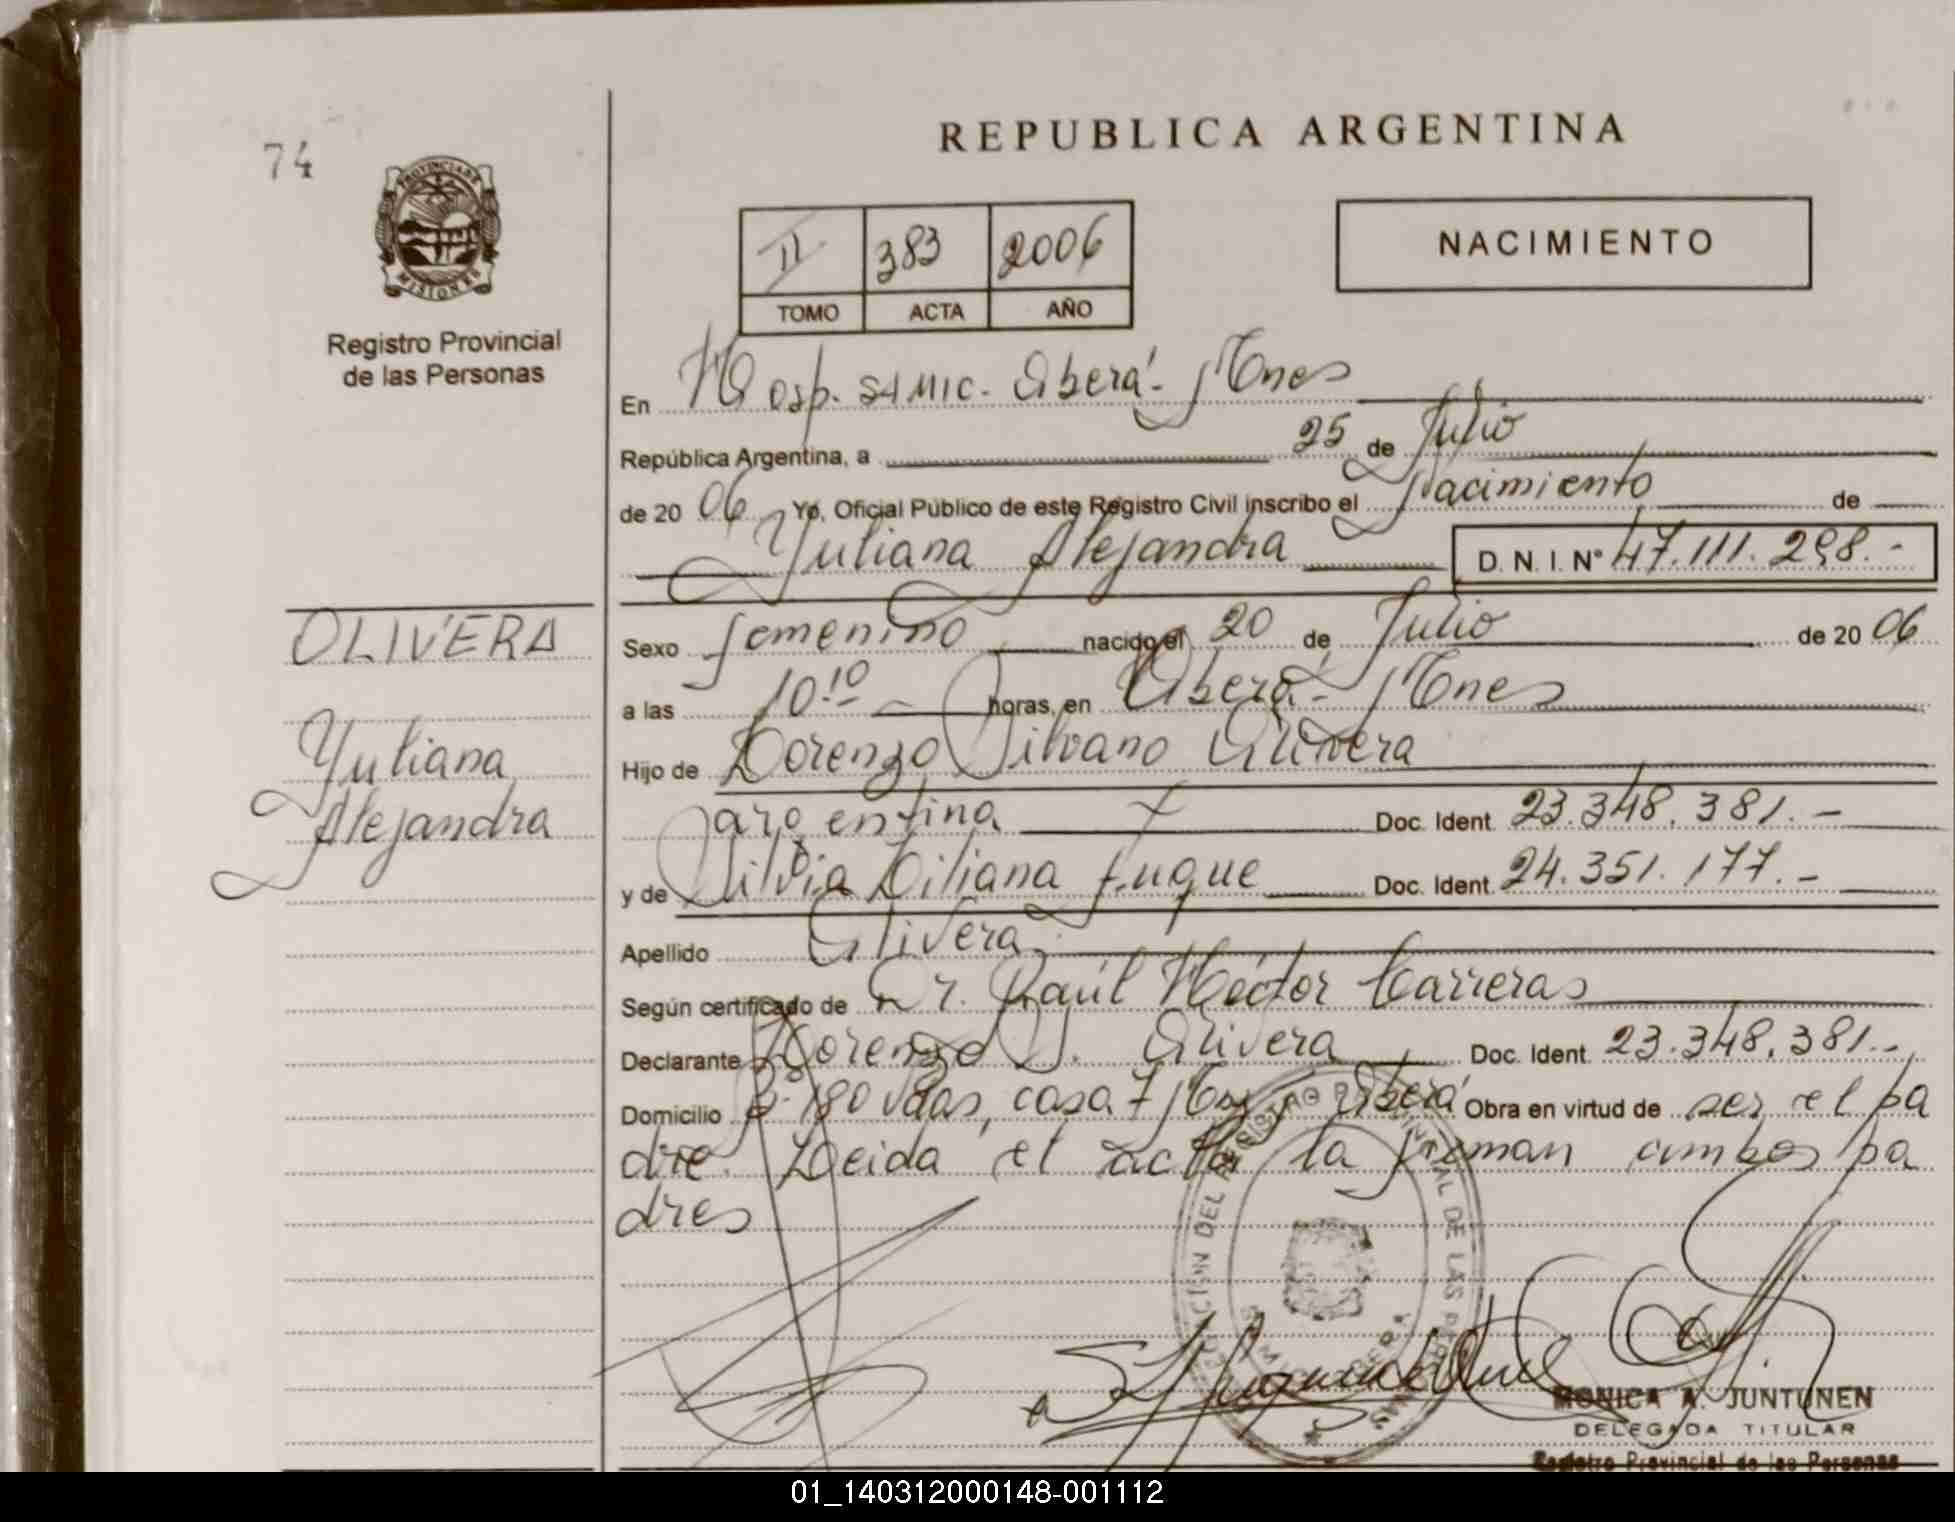 REPUBLICA ARGENTINA
74
PROVINCIA DE
MISIONES
Registro Provincial
de las Personas
II 383 2006
TOMO ACTA AÑO
NACIMIENTO
En Hosp. SAMIC. Oberá - Mnes
República Argentina, a 25 de Julio
de 20 06 Yo, Oficial Público de este Registro Civil inscribo el Nacimiento de
Yuliana Alejandra D. N. I. N° 47.111.298.-
OLIVERA
Yuliana
Alejandra
Sexo femenino nacido el 20 de Julio de 20 06
a las 10.10 horas, en Oberá - Mnes
Hijo de Lorenzo Silvano Olivera
argentina Doc. Ident. 23.348.381.-
y de Silvia Liliana Luque Doc. Ident. 24.351.177.-
Apellido Olivera
Según certificado de Dr. Raúl Héctor Carreras
Declarante Lorenzo S. Olivera Doc. Ident. 23.348.381.-
Domicilio Bº 180 Vdas, casa 7 Oberá Obra en virtud de ser el pa
dre. Leida el acta la firman ambos pa
dres
MONICA A. JUNTUNEN
DELEGADA TITULAR
Registro Provincial de las Personas
01_140312000148-001112